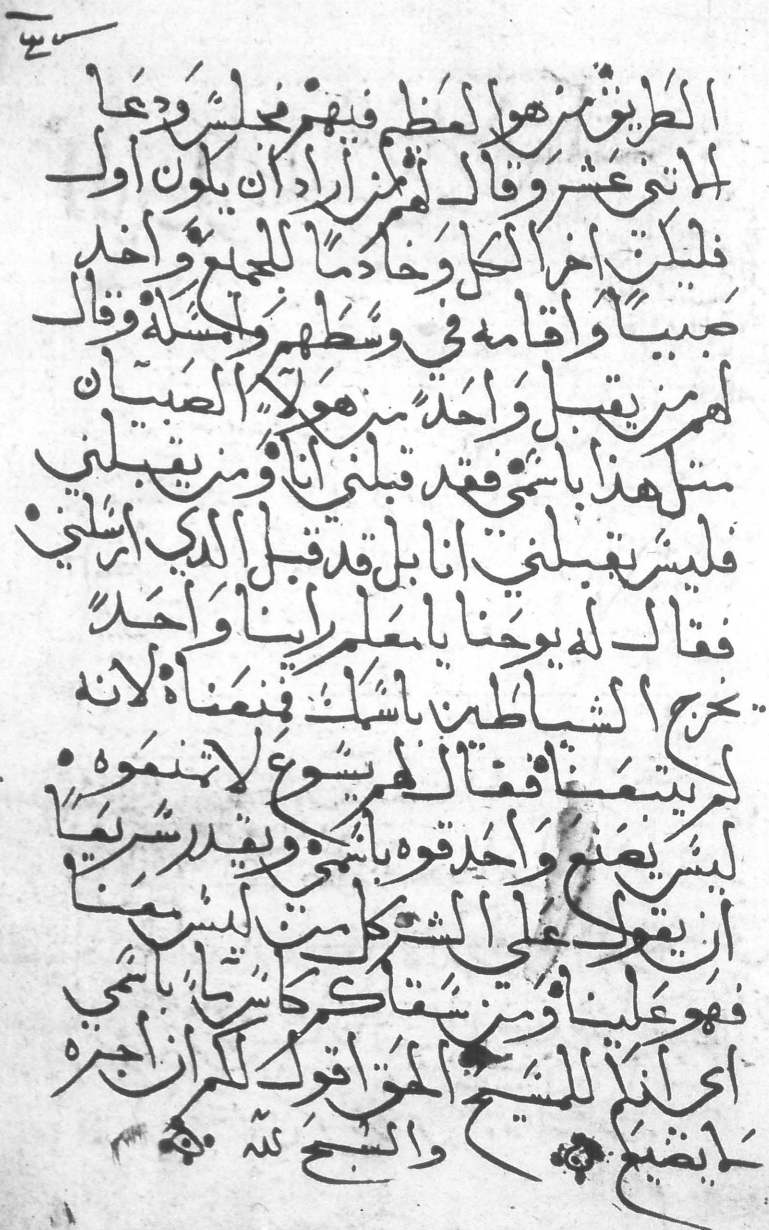 الطريق من هو العظيم فيهم فجلس ودعا
الاتنى عشر وقال لهم من اراد ان يكون اول
فليكن اخر الكل وخادما للجميع واخد
صبيا واقامه في وسطهم وامسكه وقال
لهم من يقبل واحد من هولاء الصبيان
متل هذا باسمي فقد قبلني انا ومن يقبلني
فليس يقبلني انا بل قد قبل الدي ارسلني
فقال له يوحنا يا معلم راينا واحد
يخرج الشياطين باسمك فمنعناه لانه
لم يتبعنا فقال لهم يسوع لا تمنعوه
ليس يصنع واحد قوه باسمي ويقدر سريعا
ان يقول علي الشر كل من ليس معنا
فهو علينا ومن سقاكم كاس ما باسمي
انكم للمسيح الحق اقول لكم ان اجره
لا يضيع والسبح لله